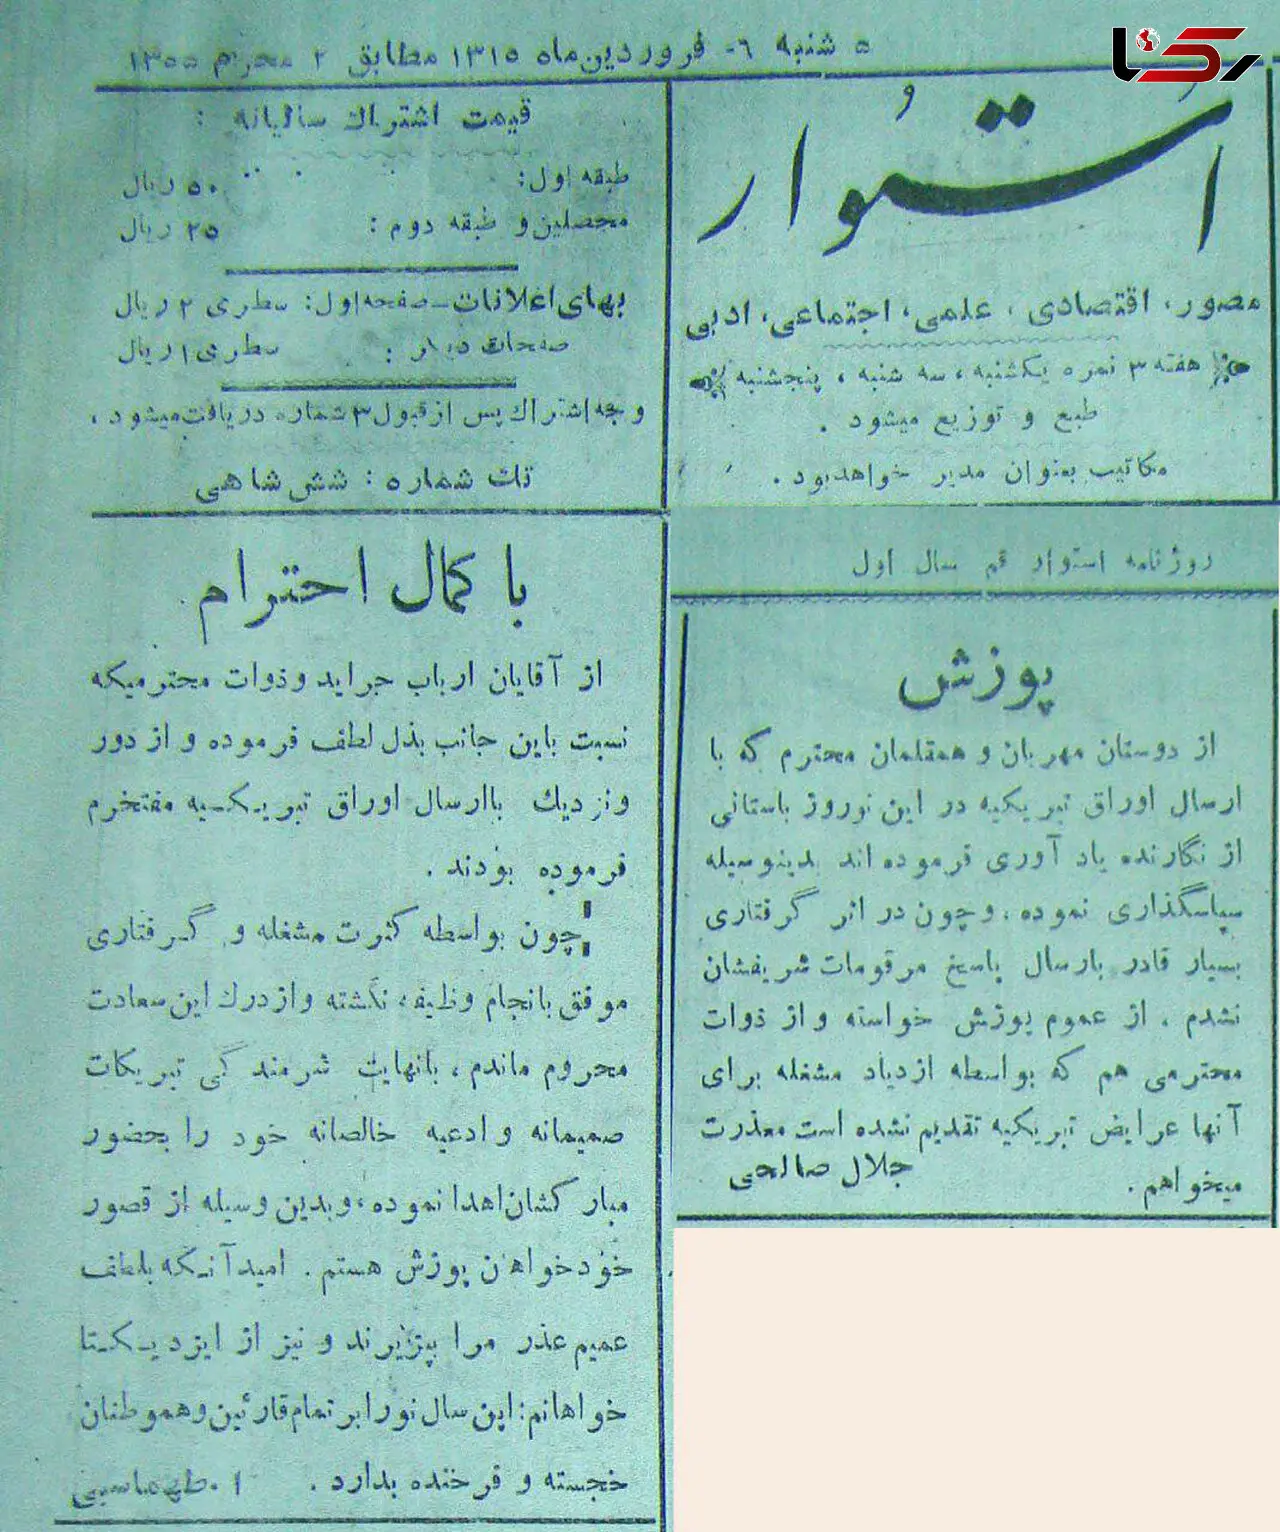 رکنا
۵ شنبه ۶- فروردین ماه ۱۳۱۵ مطابق ۲ محرم ۱۳۵۵
اُستُوار
مصور، اقتصادی، علمی، اجتماعی، ادبی
هفته ۳ نمره یکشنبه، سه شنبه، پنجشنبه
طبع و توزیع میشود.
مکاتیب بعنوان مدیر خواهد بود.
قیمت اشتراك سالیانه :
طبقه اول: ۵۰ ریال
محصلین و طبقه دوم : ۲۵ ریال
بهای اعلانات ـ صفحه اول: سطری ۲ ریال
صفحات دیگر : سطری ۱ ریال
وجه اشتراك پس از قبول ۳ شماره دریافت میشود.
تك شماره : شش شاهی
روزنامه استوار قم سال اول
پوزش
از دوستان مهربان و همقلمان محترم که با
ارسال اوراق تبریکیه در این نوروز باستانی
از نگارنده یاد آوری فرموده اند بدینوسیله
سپاسگذاری نموده، وچون در اثر گرفتاری
بسیار قادر بارسال پاسخ مرقومات شریفشان
نشدم . از عموم پوزش خواسته و از ذوات
محترمی هم که بواسطه ازدیاد مشغله برای
آنها عرایض تبریکیه تقدیم نشده است معذرت
میخواهم. جلال صالحی
با کمال احترام
از آقایان ارباب جراید وذوات محترمیکه
نسبت باین جانب بذل لطف فرموده و از دور
ونزدیك باارسال اوراق تبریکیه مفتخرم
فرموده بودند .
چون بواسطه کثرت مشغله و گرفتاری
موفق بانجام وظیفه نگشته و ازدرك این سعادت
محروم ماندم ، بانهایت شرمندگی تبریکات
صمیمانه و ادعیه خالصانه خود را بحضور
مبارکشان اهدا نموده، وبدین وسیله از قصور
خود خواهان پوزش هستم . امید آنکه بلطف
عمیم عذر مرا بپزیرند و نیز از ایزد یکتا
خواهانم: این سال نورا بر تمام قارئین وهموطنان
خجسته و فرخنده بدارد . ا . طهماسبی